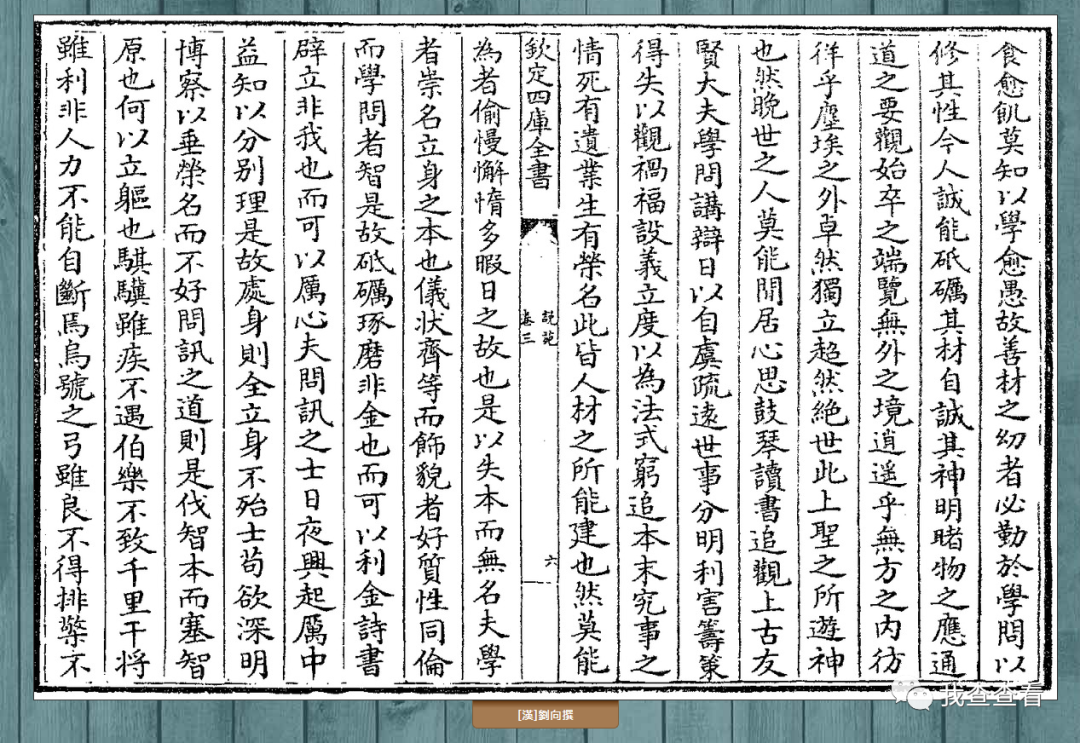 食愈飢莫知以學愈愚故善材之幼者必勤於學問以
修其性今人誠能砥礪其材自誠其神明睹物之應通
道之要觀始卒之端覽無外之境逍遥乎無方之内彷
徉乎塵埃之外卓然獨立超然絶世此上聖之所遊神
也然晚世之人莫能閒居心思鼓琴讀書追觀上古友
賢大夫學問講辯日以自虞疏遠世事分明利害籌策
得失以觀禍福設義立度以為法式窮追本末究事之
情死有遺業生有榮名此皆人材之所能建也然莫能
欽定四庫全書
說苑
卷三
六
為者偷慢懈惰多暇日之故也是以失本而無名夫學
者崇名立身之本也儀状齊等而飾貌者好質性同倫
而學問者智是故砥礪琢磨非金也而可以利金詩書
辟立非我也而可以厲心夫問訊之士日夜興起厲中
益知以分别理是故處身則全立身不殆士苟欲深明
博察以垂榮名而不好問訊之道則是伐智本而塞智
原也何以立軀也騏驥雖疾不遇伯樂不致千里干将
雖利非人力不能自斷焉烏號之弓雖良不得排檠不
[漢]劉向撰
我查查看